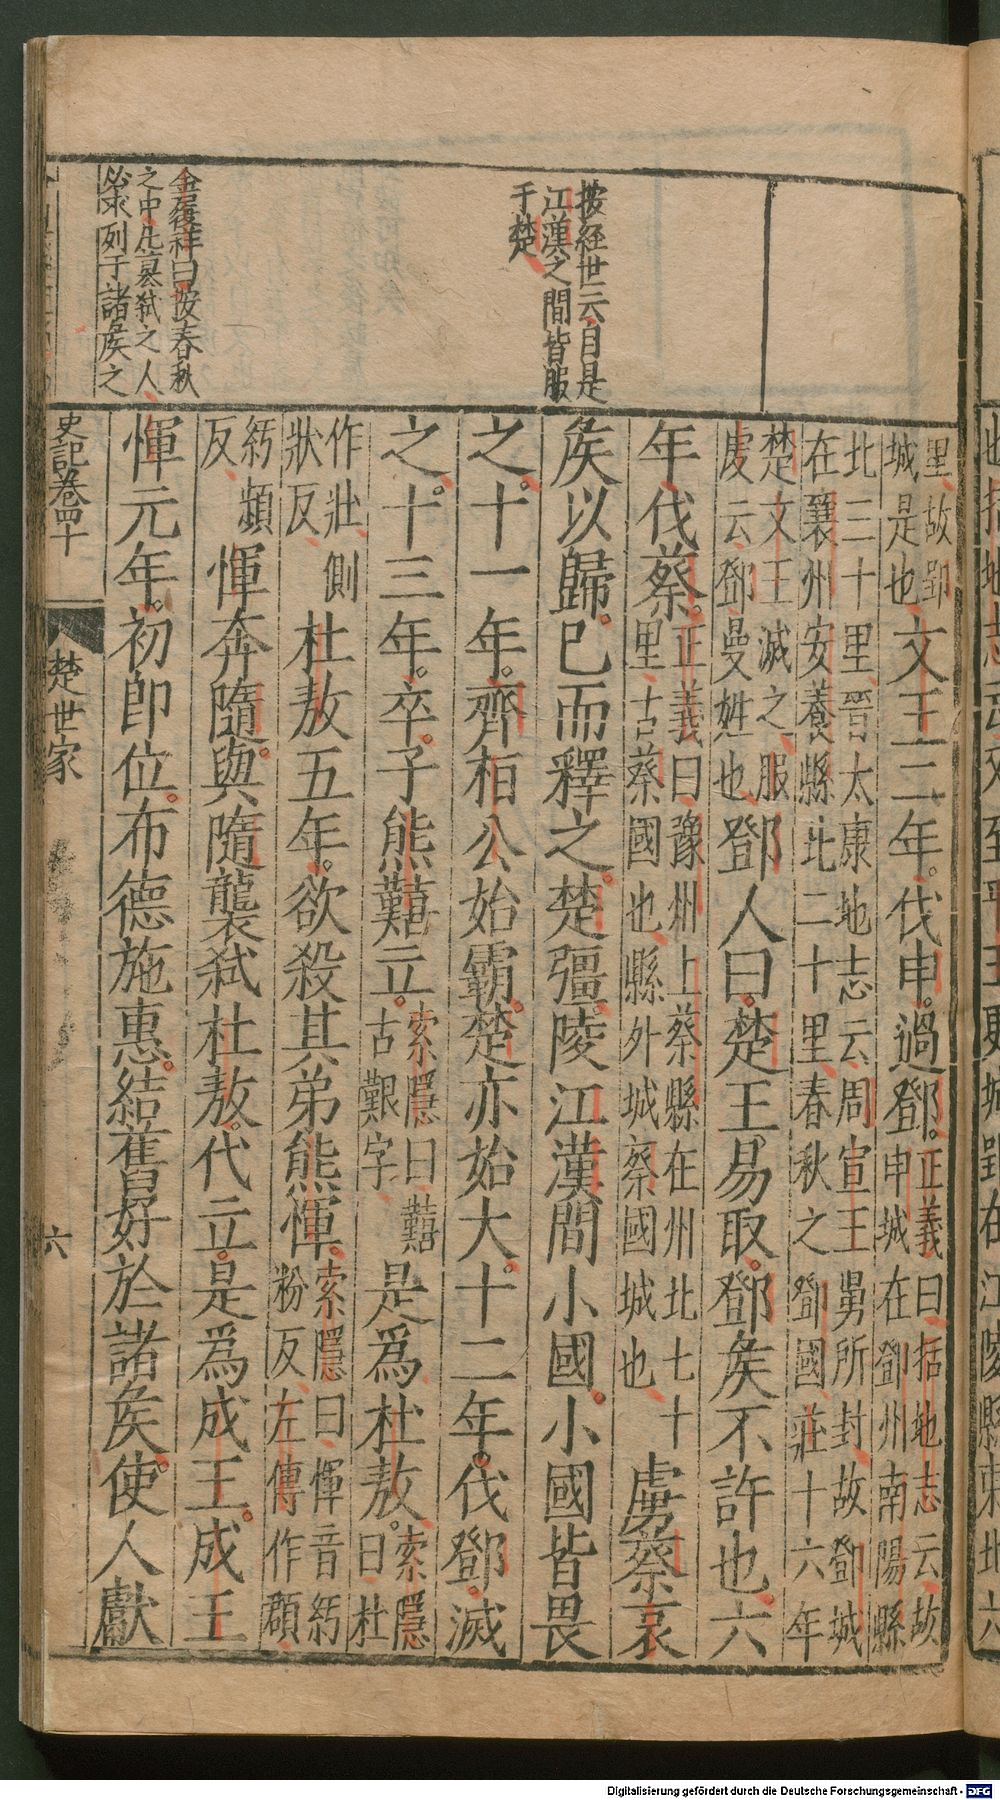 按經世云自是
江漢之間皆服
于楚
金履祥曰按春秋
之中凡篡弒之人
必求列于諸矦之
里故郢
城是也文王二年伐申過鄧正義曰括地志云故
申城在鄧州南陽縣
北三十里晉太康地志云周宣王舅所封故鄧城
在襄州安養縣北二十里春秋之鄧國莊十六年
楚文王滅之服
虔云鄧曼姓也鄧人曰楚王易取鄧矦不許也六
年伐蔡正義曰豫州上蔡縣在州北七十
里古蔡國也縣外城蔡國城也虜蔡哀
矦以歸已而釋之楚彊陵江漢間小國小國皆畏
之十一年齊桓公始霸楚亦始大十二年伐鄧滅
之十三年卒子熊囏立索隱曰囏
古艱字是爲杜敖索隱
曰杜
作壯側
狀反杜敖五年欲殺其弟熊惲索隱曰惲音紆
粉反左傳作頵
紆頵
反惲奔隨與隨襲弒杜敖代立是爲成王成王
惲元年初即位布德施惠結舊好於諸矦使人獻
史記卷四十
楚世家
六
Digitalisierung gefördert durch die Deutsche Forschungsgemeinschaft - DFG